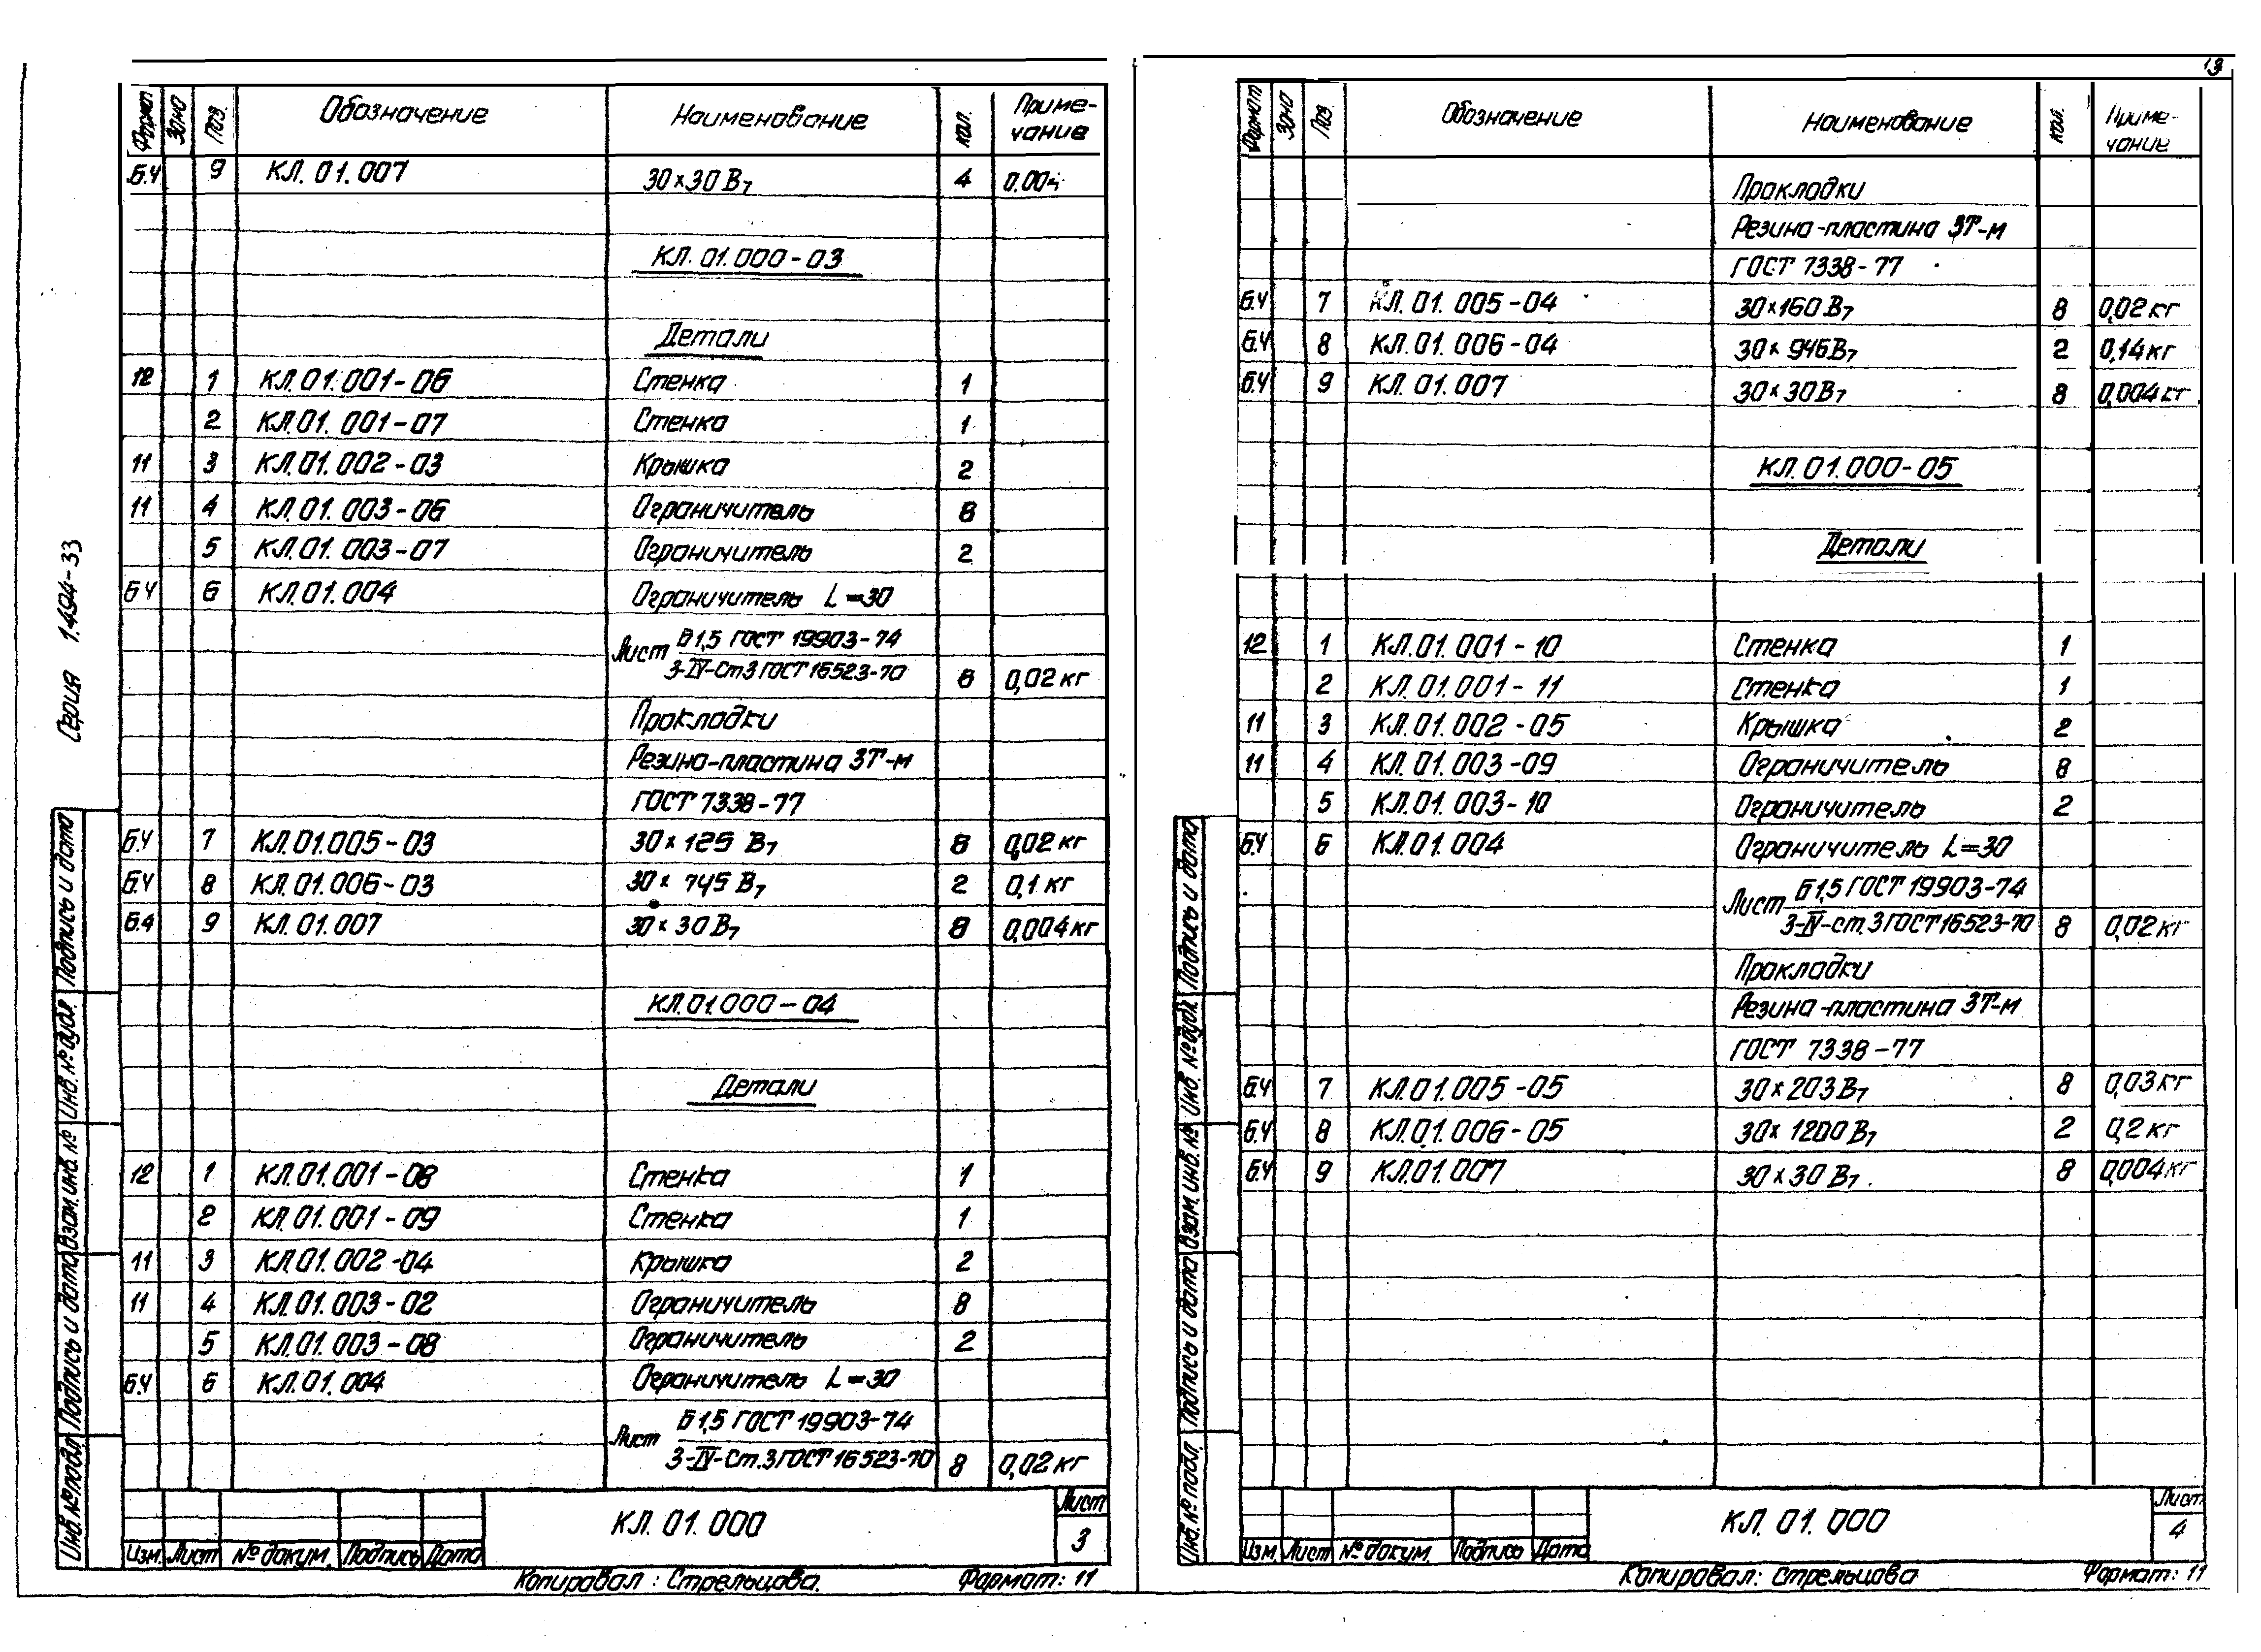 Серия 1.494-33
Формат Зона Поз. Обозначение Наименование Кол. Приме-
чание
Б.Ч 9 КЛ.01.007 30×30 В7 4 0.004
КЛ.01.000-03
Детали
12 1 КЛ.01.001-06 Стенка 1
2 КЛ.01.001-07 Стенка 1
11 3 КЛ.01.002-03 Крышка 2
11 4 КЛ.01.003-06 Ограничитель 8
5 КЛ.01.003-07 Ограничитель 2
БЧ 6 КЛ.01.004 Ограничитель L=30
Лист Б1,5 ГОСТ 19903-74
3-IV-Ст3 ГОСТ 16523-70 0,02 кг
Прокладки
Резина-пластина 3Т-м
ГОСТ 7338-77
Б.Ч 7 КЛ.01.005-03 30×125 В7 8 0,02 кг
Б.Ч 8 КЛ.01.006-03 30×745 В7 2 0,1 кг
Б.4 9 КЛ.01.007 30×30 В7 8 0,004 кг
КЛ.01.000-04
Детали
12 1 КЛ.01.001-08 Стенка 1
2 КЛ.01.001-09 Стенка 1
11 3 КЛ.01.002-04 Крышка 2
11 4 КЛ.01.003-02 Ограничитель 8
5 КЛ.01.003-08 Ограничитель 2
Б.Ч 6 КЛ.01.004 Ограничитель L=30
Лист Б1,5 ГОСТ 19903-74
3-IV-Ст.3 ГОСТ 16523-70 8 0,02 кг
Инв.№подл Подпись и дата Взам.инв.№ Инв.№дубл. Подпись и дата
Изм. Лист №докум. Подпись Дата
КЛ.01.000
Лист
3
Копировал: Стрельцова. Формат: 11
13
Формат Зона Поз. Обозначение Наименование Кол. Приме-
чание
Прокладки
Резина-пластина 3Т-м
ГОСТ 7338-77
Б.Ч 7 КЛ.01.005-04 30×160 В7 8 0,02 кг
Б.Ч 8 КЛ.01.006-04 30×946 В7 2 0,14 кг
Б.Ч 9 КЛ.01.007 30×30 В7 8 0,004 кг
КЛ.01.000-05
Детали
12 1 КЛ.01.001-10 Стенка 1
2 КЛ.01.001-11 Стенка 1
11 3 КЛ.01.002-05 Крышка 2
11 4 КЛ.01.003-09 Ограничитель 8
5 КЛ.01.003-10 Ограничитель 2
Б.Ч 6 КЛ.01.004 Ограничитель L=30
Лист Б1,5 ГОСТ 19903-74
3-IV-ст.3 ГОСТ 16523-70 8 0,02 кг
Прокладки
Резина-пластина 3Т-м
ГОСТ 7338-77
Б.Ч 7 КЛ.01.005-05 30×203 В7 8 0,03 кг
Б.Ч 8 КЛ.01.006-05 30×1200 В7 2 0,2 кг
Б.Ч 9 КЛ.01.007 30×30 В7. 8 0,004 кг
Инв.№подл Подпись и дата Взам.инв.№ Инв.№дубл. Подпись и дата
Изм Лист №докум. Подпись Дата
КЛ.01.000
Лист
4
Копировал: Стрельцова Формат: 11